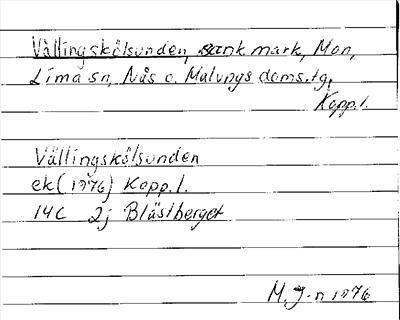 Vällingskölsunden, sank mark, Mon,
Lima sn, Nås o. Malungs doms.tg,
Kopp.l.
Vällingskölsunden
ek(1976) Kopp.l.
14C 2j Blästberget
M.J-n 1976